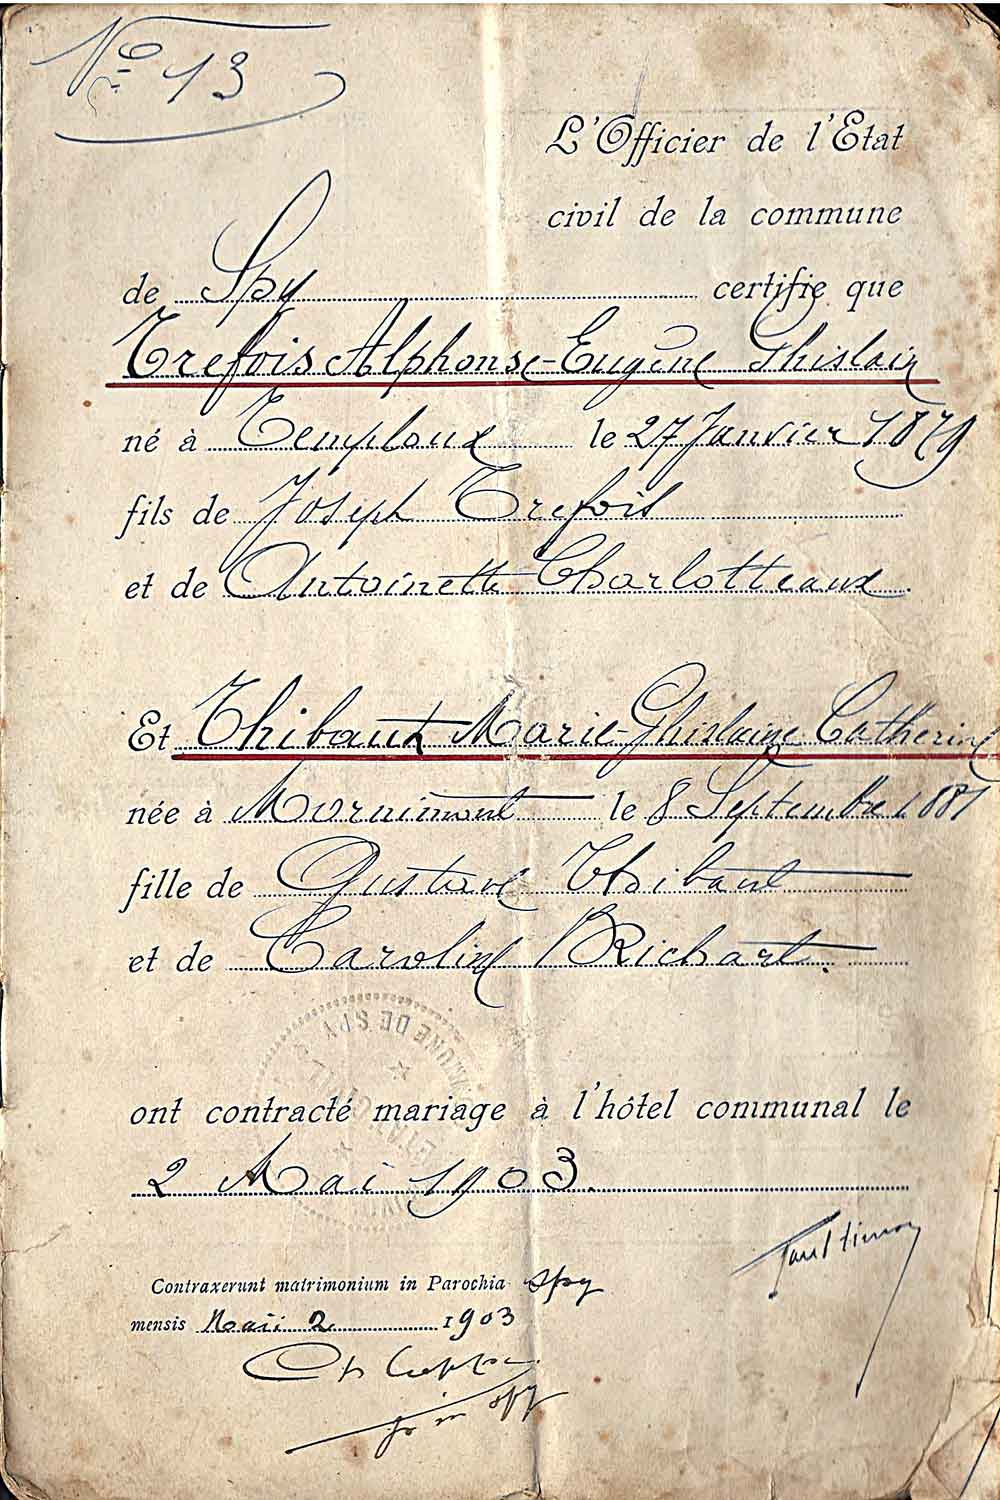 Nº 13
L'Officier de l'Etat
civil de la commune
de Spy certifie que
Trefois Alphonse-Eugène Ghislain
né à Temploux le 27 Janvier 1879
fils de Joseph Trefois
et de Antoinette Charlotteaux.
Et Thibaut Marie-Ghislaine Catherine
née à Mornimont le 8 Septembre 1881
fille de Gustave Thibaut
et de Caroline Richart.
COMMUNE DE SPY
ETAT CIVIL
ont contracté mariage à l'hôtel communal le
2 Mai 1903.
Contraxerunt matrimonium in Parochia Spy
mensis Maii 2 1903
in Spy